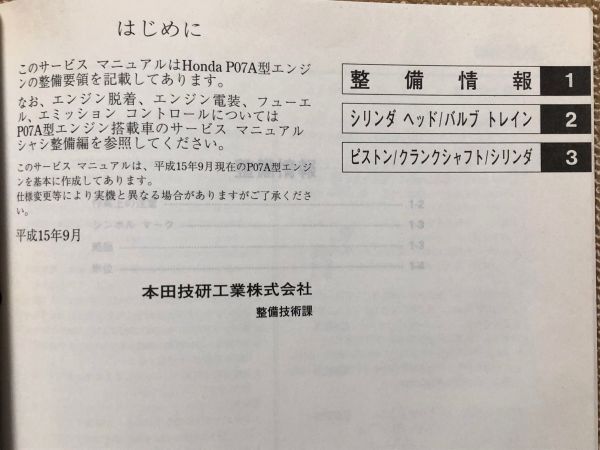 はじめに
このサービス マニュアルはHonda P07A型エンジ
ンの整備要領を記載してあります。
なお、エンジン脱着、エンジン電装、フューエ
ル、エミッション コントロールについては
P07A型エンジン搭載車のサービス マニュアル
シャシ整備編を参照してください。
このサービス マニュアルは、平成15年9月現在のP07A型エンジ
ンを基本に作成してあります。
仕様変更等により実機と異なる場合がありますがご了承くださ
い。
平成15年9月
本田技研工業株式会社
整備技術課
整備情報 1
シリンダ ヘッド/バルブ トレイン 2
ピストン/クランクシャフト/シリンダ 3
整備情報
1-2
シンボル マーク 1-3
1-3
1-4